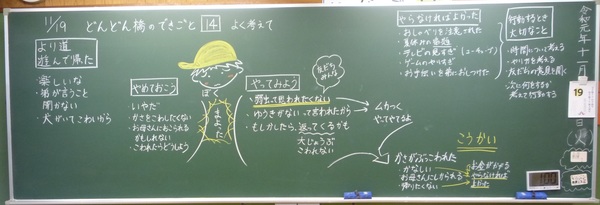 11/19 どんどん橋のできごと 14 よく考えて
より道
遊んで帰った
・楽しいな
・弟が言うこと
聞かない
・犬がいてこわいから
やめておこう
・いやだ
・かさをこわしたくない
・お母さんにおこられる
かもしれない
・こわれたらどうしよう
ぼく
まよった
やってみよう
友だち
みんな
・弱虫って思われたくない
・ゆうきがないって言われたから
・もしかしたら、返ってくるかも
大じょうぶ
こわれない
ムカつく
やってやるよ
こうかい
かさがぶっこわれた
・かなしい
・お母さんにしかられる
・帰りたくない
お金がかかる
やらなければ
よかった
やらなければよかった
・おしゃべりを注意された
・夏休みの宿題
・テレビの見すぎ(ユーチューブ)
・ゲームのやりすぎ
・お手伝いを弟におしつけた
行動するとき
大切なこと
・時間について考える
・やり方を考える
・友だちの意見を聞く
次に何をするか
考えて行動する
令和元年十一月
19
日
火